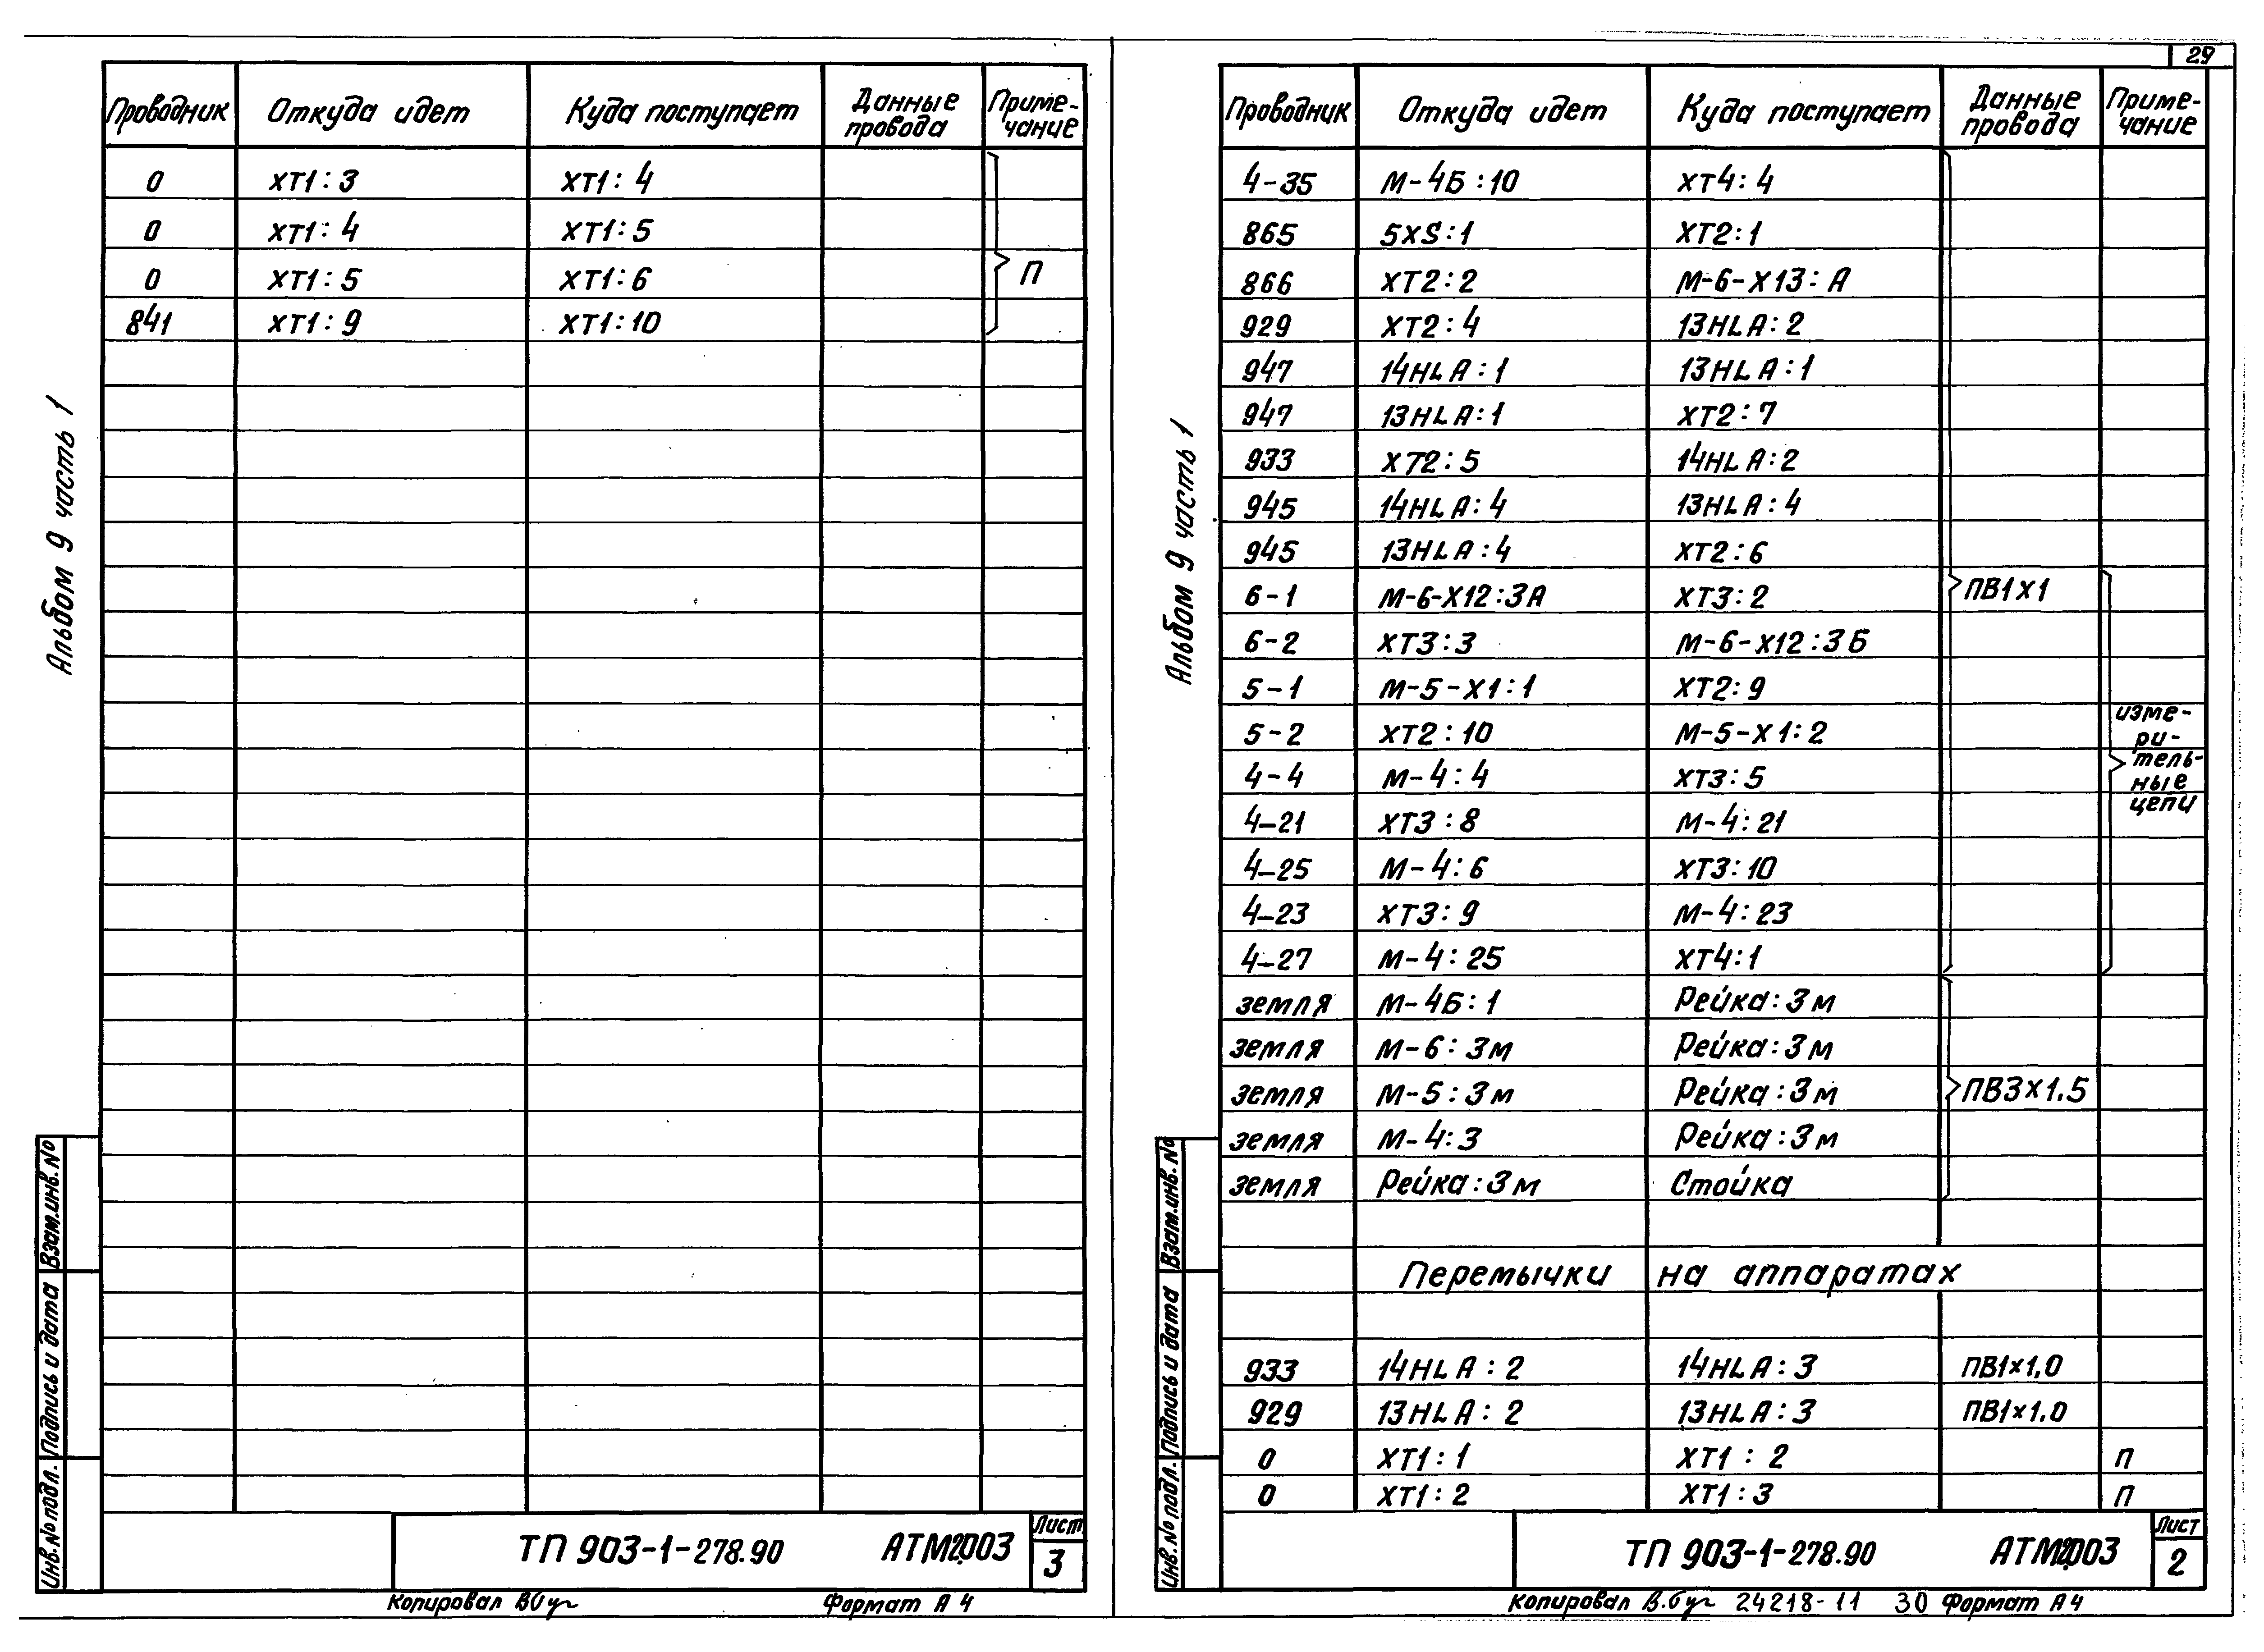 Проводник Откуда идет Куда поступает Данные провода Приме-чание
0 ХТ1:3 ХТ1:4
0 ХТ1:4 ХТ1:5
0 ХТ1:5 ХТ1:6 П
841 ХТ1:9 ХТ1:10
Альбом 9 часть 1
Взам.инв.№
Подпись и дата
Инв.№ подл.
ТП 903-1-278.90 АТМ2.003 Лист 3
Копировал Формат А4
29
Проводник Откуда идет Куда поступает Данные провода Приме-чание
4-35 М-4Б:10 ХТ4:4
865 5XS:1 ХТ2:1
866 ХТ2:2 М-6-Х13:А
929 ХТ2:4 13HLA:2
947 14HLA:1 13HLA:1
947 13HLA:1 ХТ2:7
933 ХТ2:5 14HLA:2
945 14HLA:4 13HLA:4
945 13HLA:4 ХТ2:6
6-1 М-6-Х12:3А ХТ3:2 ПВ1х1
6-2 ХТ3:3 М-6-Х12:3Б
5-1 М-5-Х1:1 ХТ2:9
5-2 ХТ2:10 М-5-Х1:2
4-4 М-4:4 ХТ3:5
4-21 ХТ3:8 М-4:21
4-25 М-4:6 ХТ3:10
4-23 ХТ3:9 М-4:23
4-27 М-4:25 ХТ4:1
изме-
ри-
тель-
ные
цепи
земля М-4Б:1 Рейка:3м
земля М-6:3м Рейка:3м
земля М-5:3м Рейка:3м ПВ3х1.5
земля М-4:3 Рейка:3м
земля Рейка:3м Стойка
Перемычки на аппаратах
933 14HLA:2 14HLA:3 ПВ1х1,0
929 13HLA:2 13HLA:3 ПВ1х1.0
0 ХТ1:1 ХТ1:2 П
0 ХТ1:2 ХТ1:3 П
Альбом 9 часть 1
Взам.инв.№
Подпись и дата
Инв.№ подл.
ТП 903-1-278.90 АТМ2.003 Лист 2
Копировал 24218-11 30 Формат А4